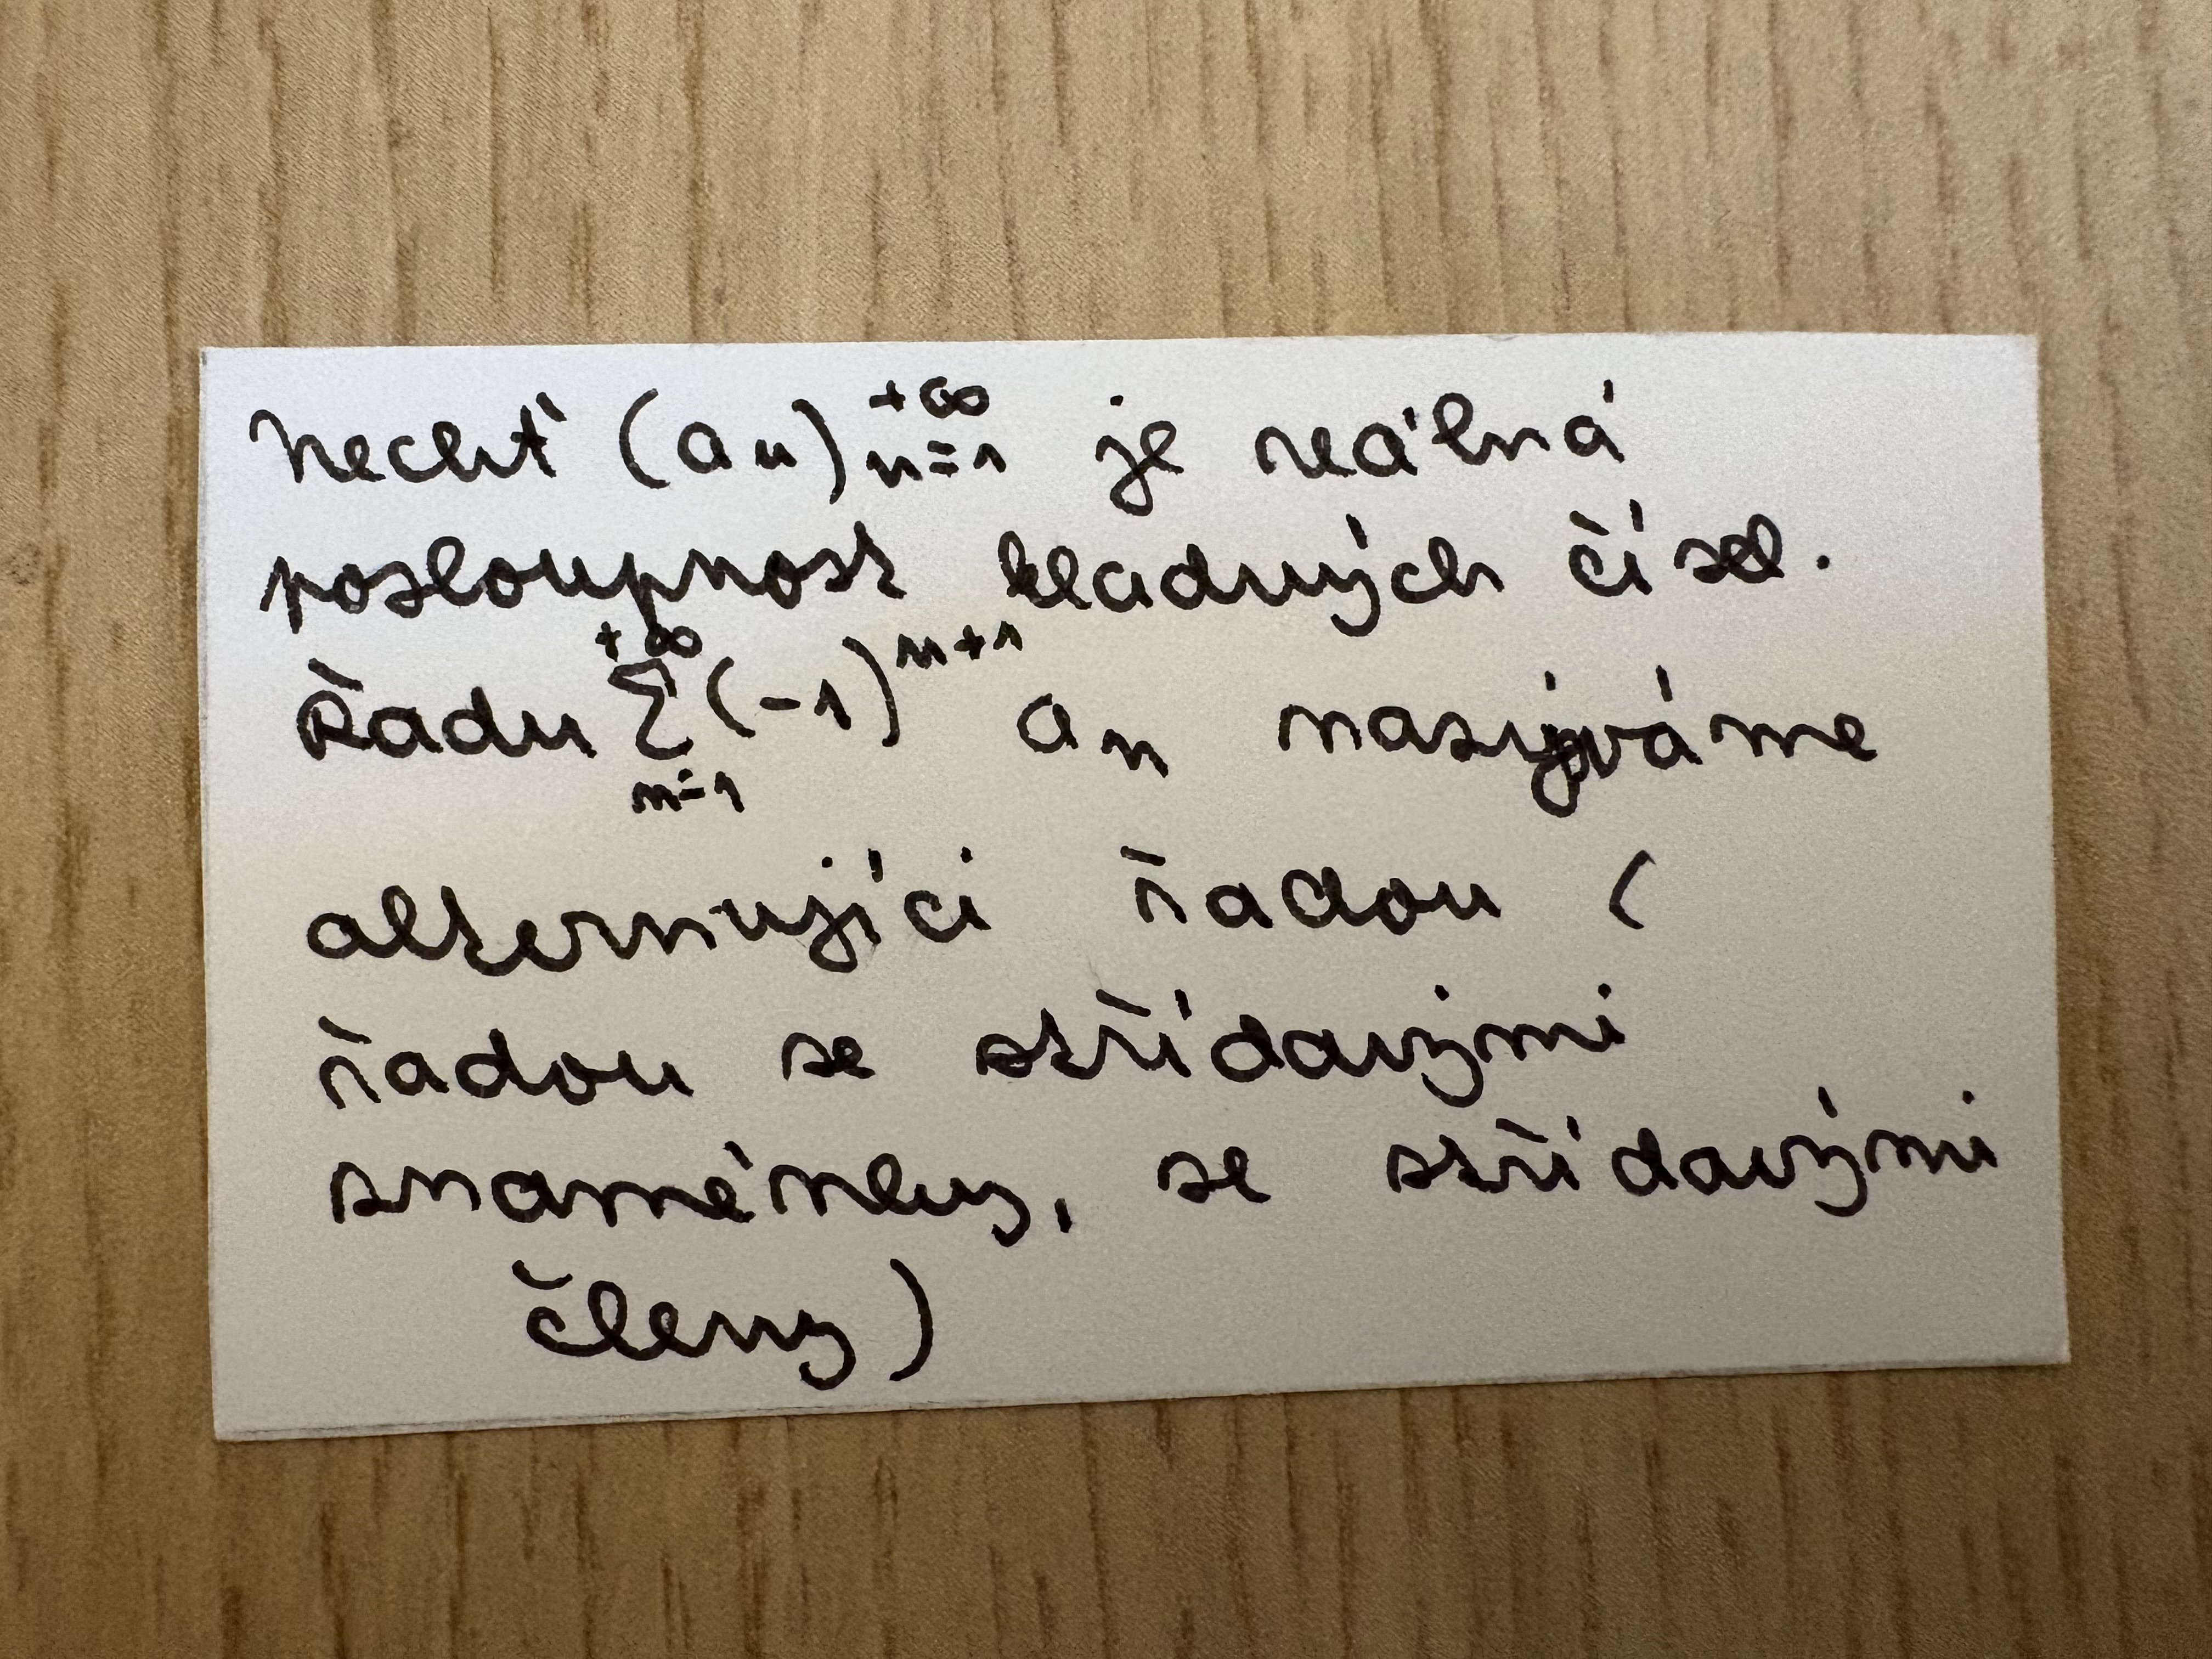 Nechť (aₙ)ₙ₌₁⁺∞ je reálná
posloupnost kladných čísel.
Řadu ∑ₙ₌₁⁺∞ (-1)ⁿ⁺¹ aₙ nazýváme
alternující řadou (
řadou se střídavými
znaménky, se střídavými
členy)